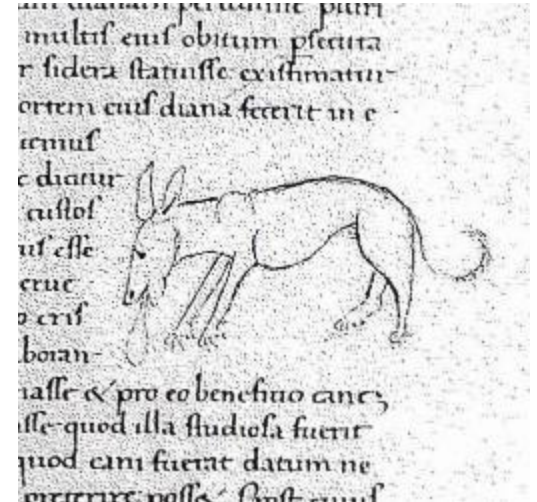 multis eius obitum psecuta
r sidera statuisse existimatur
ortem eius diana fecerit in e
uemus
e dicitur
custos
uis esse
erue
o cris
boran-
nasse & pro eo beneficio cane
sse quod illa studiosa fuerit
quod cani fuerat datum ne
preterire posse Post